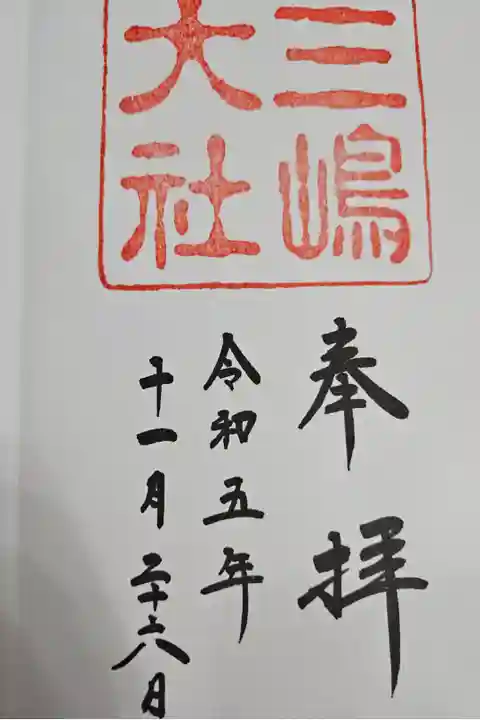 三嶋
大社
奉拝
令和五年
十一月二十六日